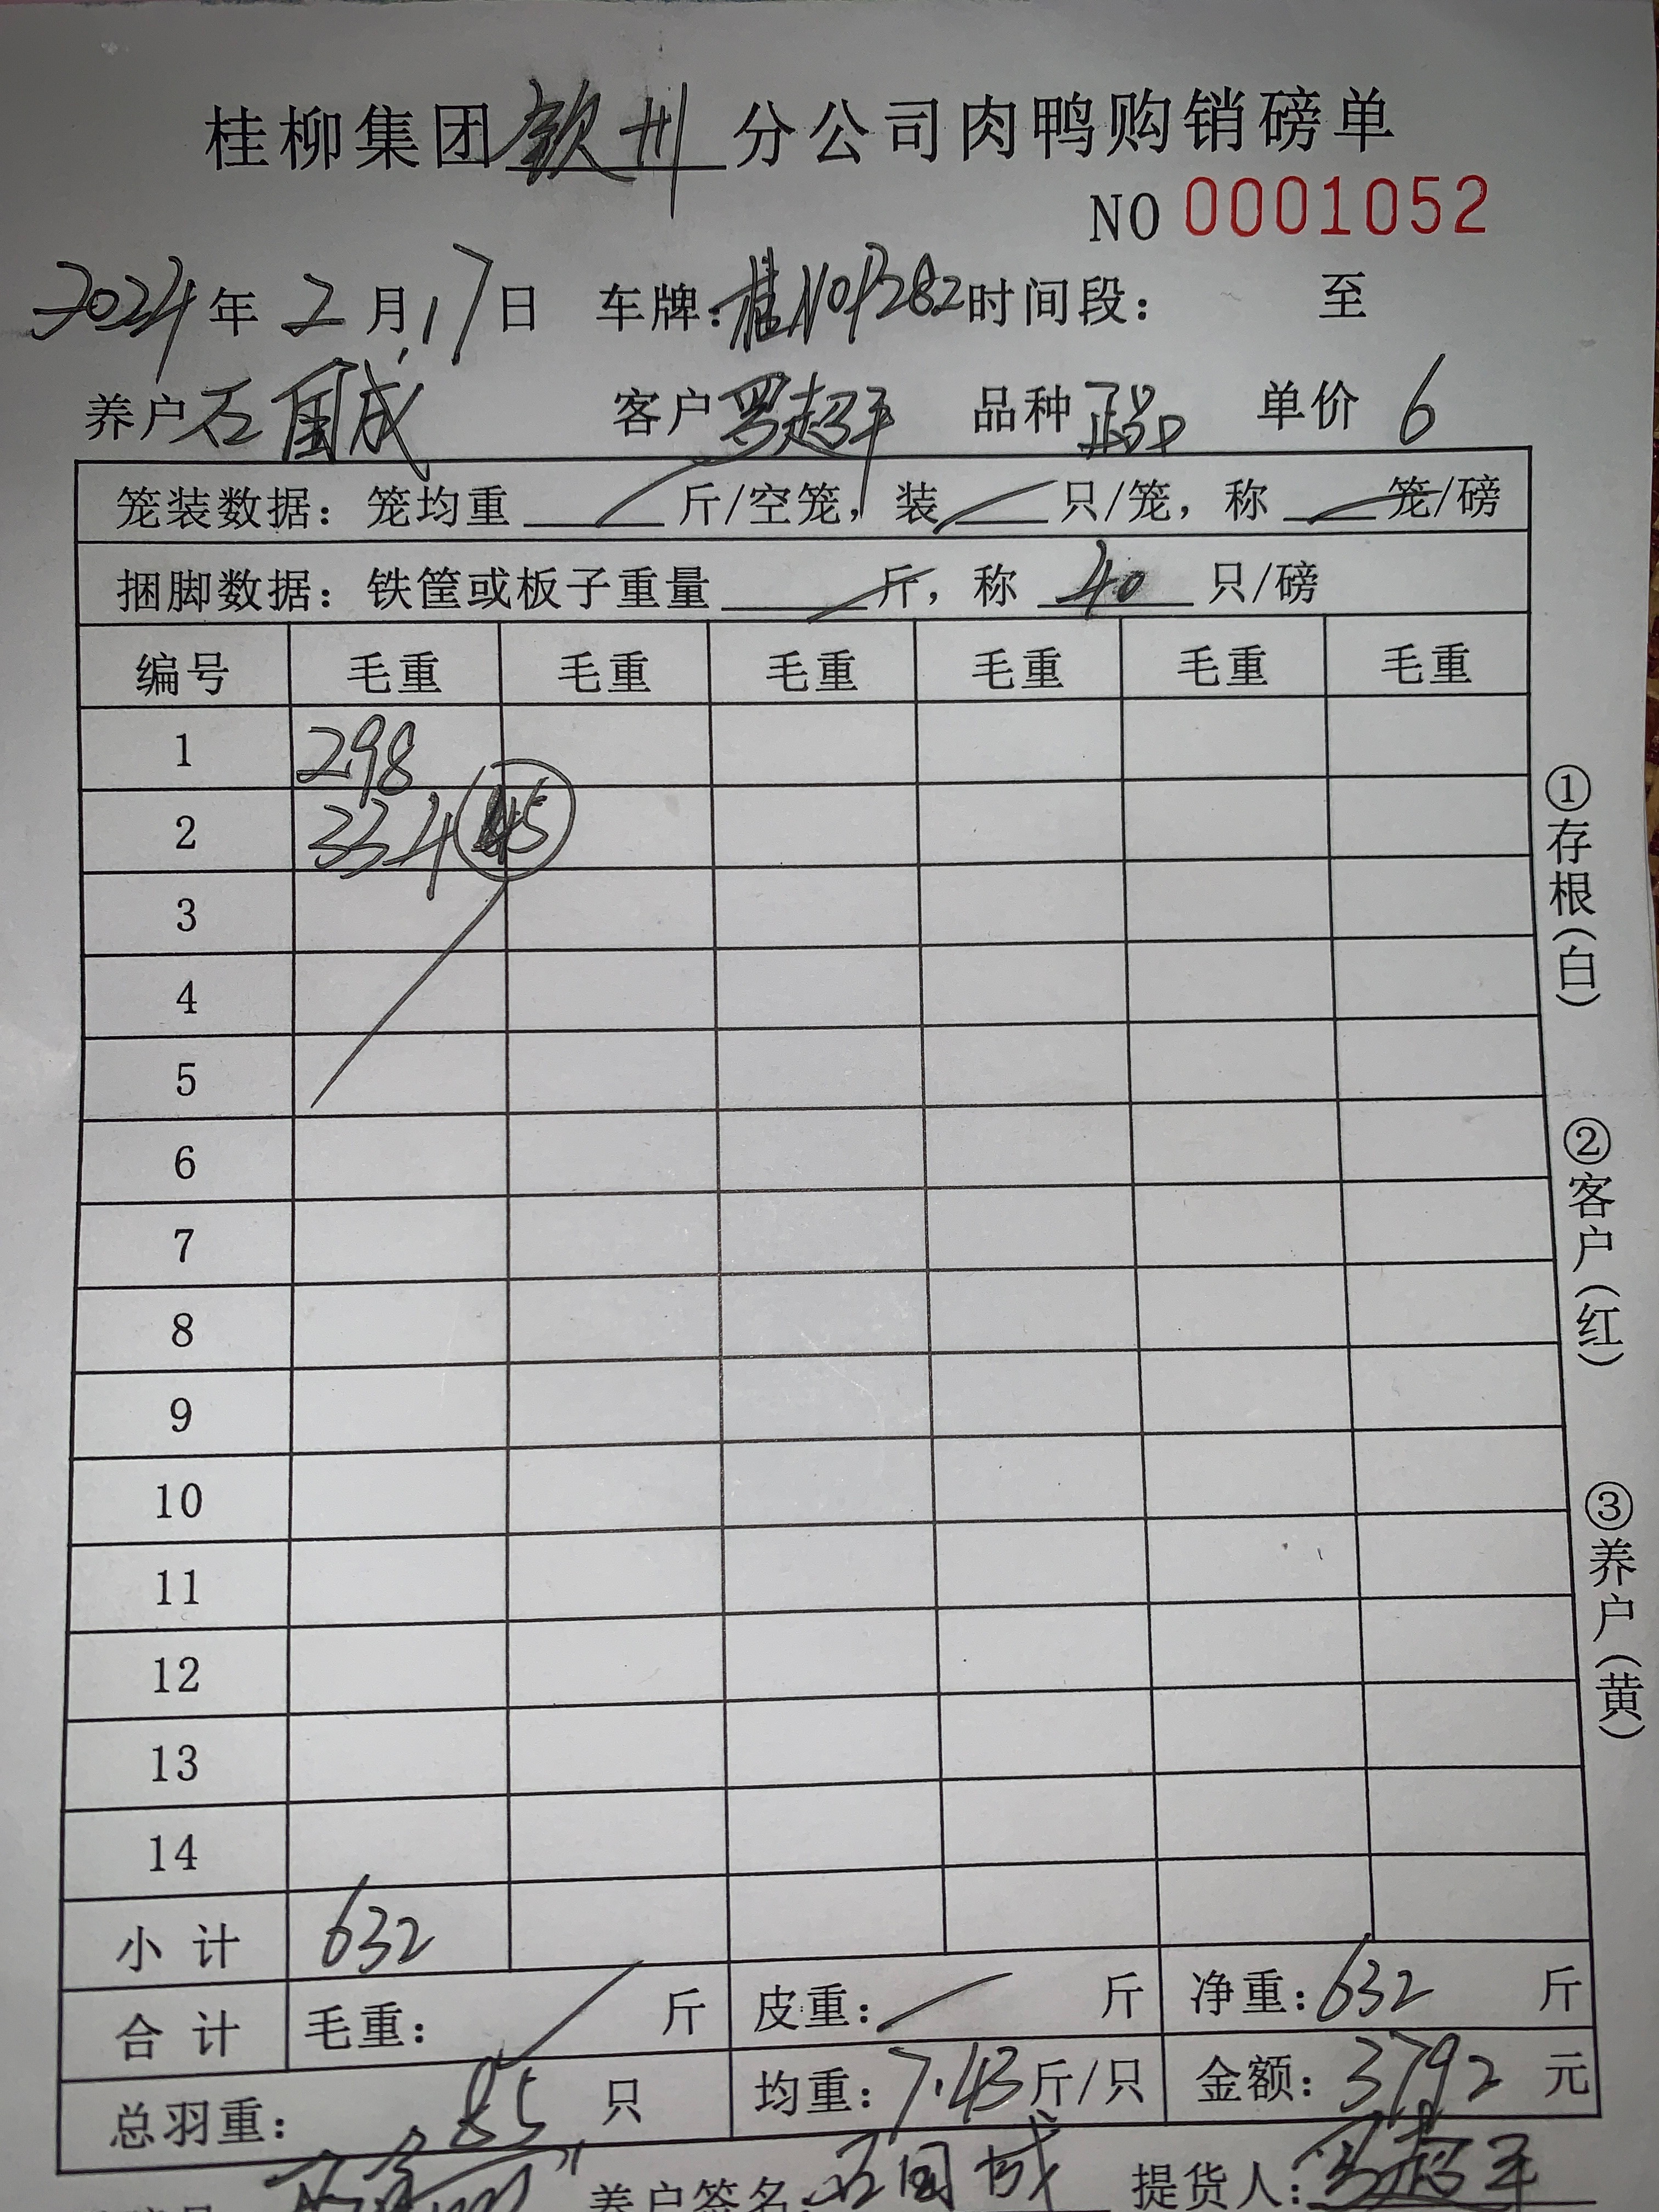 桂柳集团钦州分公司肉鸭购销磅单
NO 0001052
2024年2月17日 车牌:桂N 时间段: 至
养户石国成 客户罗超平 品种 单价 6
笼装数据:笼均重 斤/空笼,装 只/笼,称 笼/磅
捆脚数据:铁筐或板子重量 斤,称 40 只/磅
编号 毛重 毛重 毛重 毛重 毛重 毛重
1 298
2 334 45
3
4
5
6
7
8
9
10
11
12
13
14
小计 632
合计 毛重: 斤 皮重: 斤 净重:632 斤
总羽重: 85 只 均重:7.43斤/只 金额:3792 元
养户签名:石国成 提货人:罗超平
①存根(白)
②客户(红)
③养户(黄)